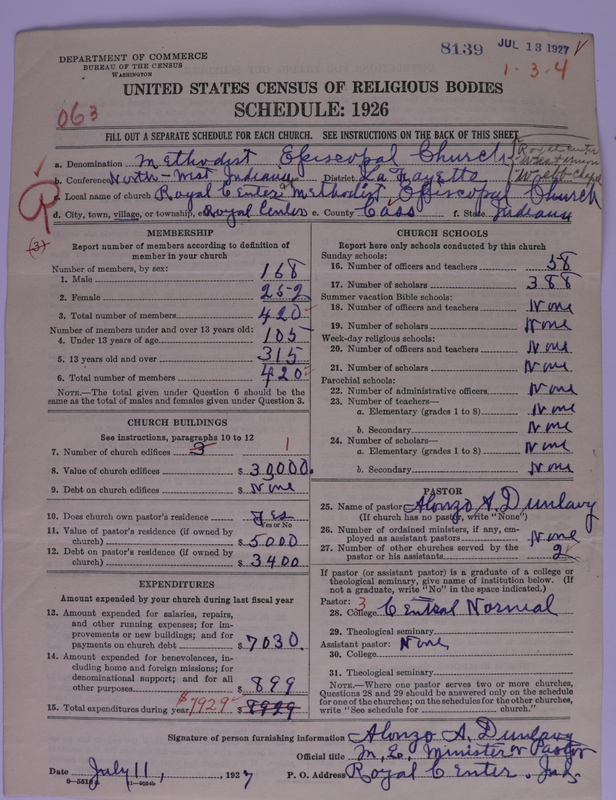 DEPARTMENT OF COMMERCE
BUREAU OF THE CENSUS
WASHINGTON
8139 JUL 13 1927
1-3-4
UNITED STATES CENSUS OF RELIGIOUS BODIES
063
SCHEDULE: 1926
FILL OUT A SEPARATE SCHEDULE FOR EACH CHURCH. SEE INSTRUCTIONS ON THE BACK OF THIS SHEET
a. Denomination Methodist Episcopal Church
Royal Center
b. Conference North-West Indiana District La Fayette
c. Local name of church Royal Center Methodist Episcopal Church
d. City, town, village, or township, Royal Center e. County Cass f. State Indiana
(3)
MEMBERSHIP
Report number of members according to definition of
member in your church
Number of members, by sex:
1. Male 168
2. Female 252
3. Total number of members 420
Number of members under and over 13 years old:
4. Under 13 years of age 105
5. 13 years old and over 315
6. Total number of members 420
NOTE.—The total given under Question 6 should be the
same as the total of males and females given under Question 3.
CHURCH BUILDINGS
See instructions, paragraphs 10 to 12
7. Number of church edifices 3 1
8. Value of church edifices $ 30000.
9. Debt on church edifices $ None
10. Does church own pastor's residence Yes
Yes or No
11. Value of pastor's residence (if owned by
church) $ 5000
12. Debt on pastor's residence (if owned by
church) $ 3400
EXPENDITURES
Amount expended by your church during last fiscal year
13. Amount expended for salaries, repairs,
and other running expenses; for im-
provements or new buildings; and for
payments on church debt $ 7030.
14. Amount expended for benevolences, in-
cluding home and foreign missions; for
denominational support; and for all
other purposes $ 899
15. Total expenditures during year $7929 $ 8929
CHURCH SCHOOLS
Report here only schools conducted by this church
Sunday schools:
16. Number of officers and teachers 58
17. Number of scholars 388
Summer vacation Bible schools:
18. Number of officers and teachers None
19. Number of scholars None
Week-day religious schools:
20. Number of officers and teachers None
21. Number of scholars None
Parochial schools:
22. Number of administrative officers None
23. Number of teachers—
a. Elementary (grades 1 to 8) None
b. Secondary None
24. Number of scholars—
a. Elementary (grades 1 to 8) None
b. Secondary None
PASTOR
25. Name of pastor Alonzo A. Dunlavy
(If church has no pastor, write "None")
26. Number of ordained ministers, if any, em-
ployed as assistant pastors None
27. Number of other churches served by the
pastor or his assistants 2
If pastor (or assistant pastor) is a graduate of a college or
theological seminary, give name of institution below. (If
not a graduate, write "No" in the space indicated.)
Pastor: 3
28. College Central Normal
29. Theological seminary
Assistant pastor: None
30. College
31. Theological seminary
NOTE.—Where one pastor serves two or more churches,
Questions 28 and 29 should be answered only on the schedule
for one of the churches; on the schedules for the other churches,
write "See schedule for church."
Signature of person furnishing information Alonzo A. Dunlavy
Official title M. E. Minister or Pastor
Date July 11, 1927 P. O. Address Royal Center, Ind.